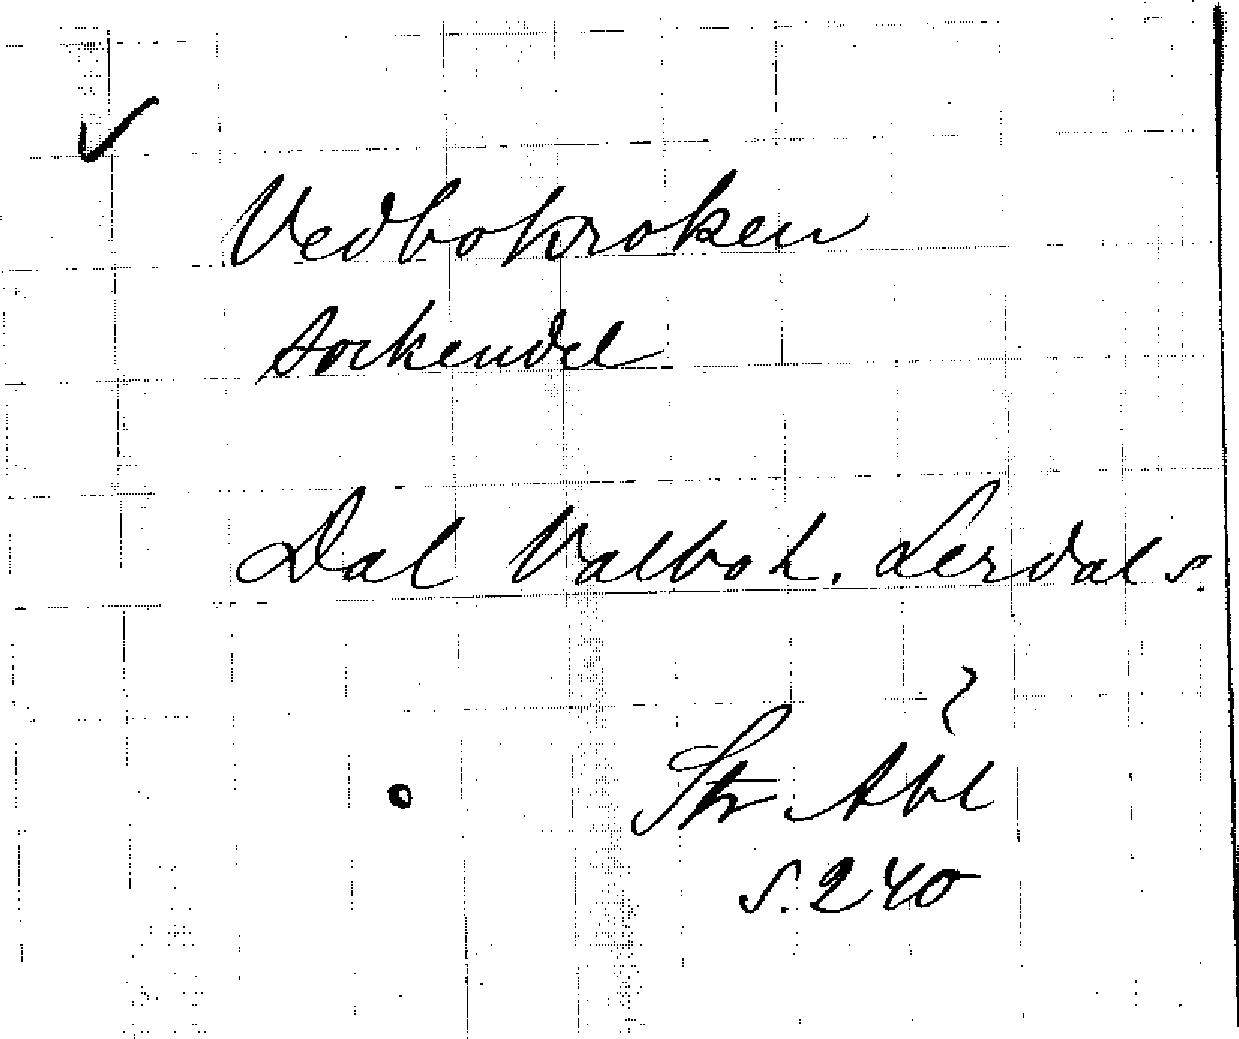 ✓
Vedbokroken
sockendel
Dal Valbo h. Lerdals
Str. Abl
s. 240